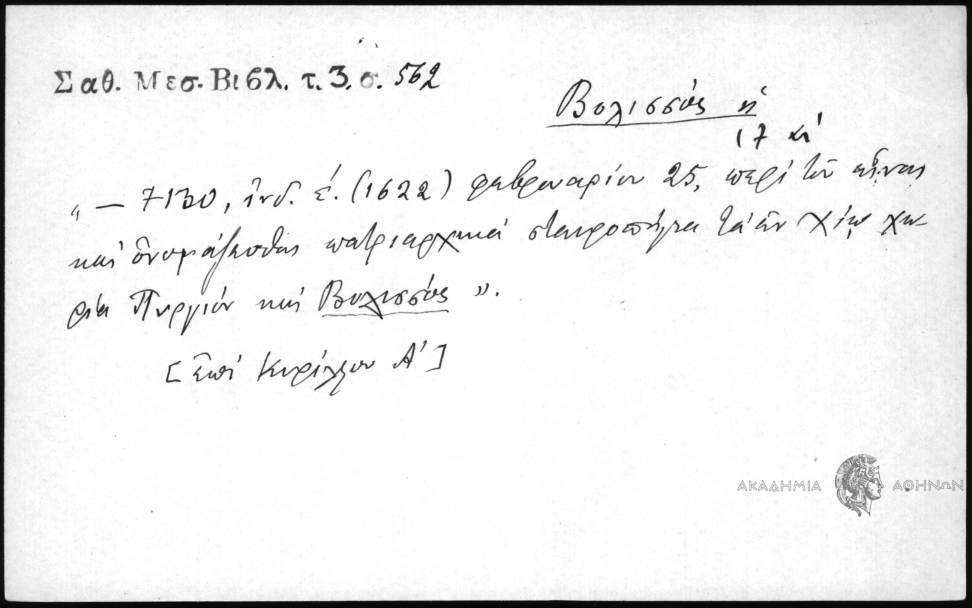 Σαθ. Μεσ. Βιβλ. τ. 3. σ. 562
Βολισσός ἡ
17 αἰ
“ — 7130, ἰνδ. έ. (1622) φεβρουαρίου 25, περὶ τοῦ εἶναι
καὶ ὀνομάζεσθαι πατριαρχικὰ σταυροπήγια τὰ ἐν Χίῳ χω-
ρία Πυργίον καὶ Βολισσός ”.
[ἐπὶ Κυρίλλου Α']
ΑΚΑΔΗΜΙΑ ΑΘΗΝΩΝ